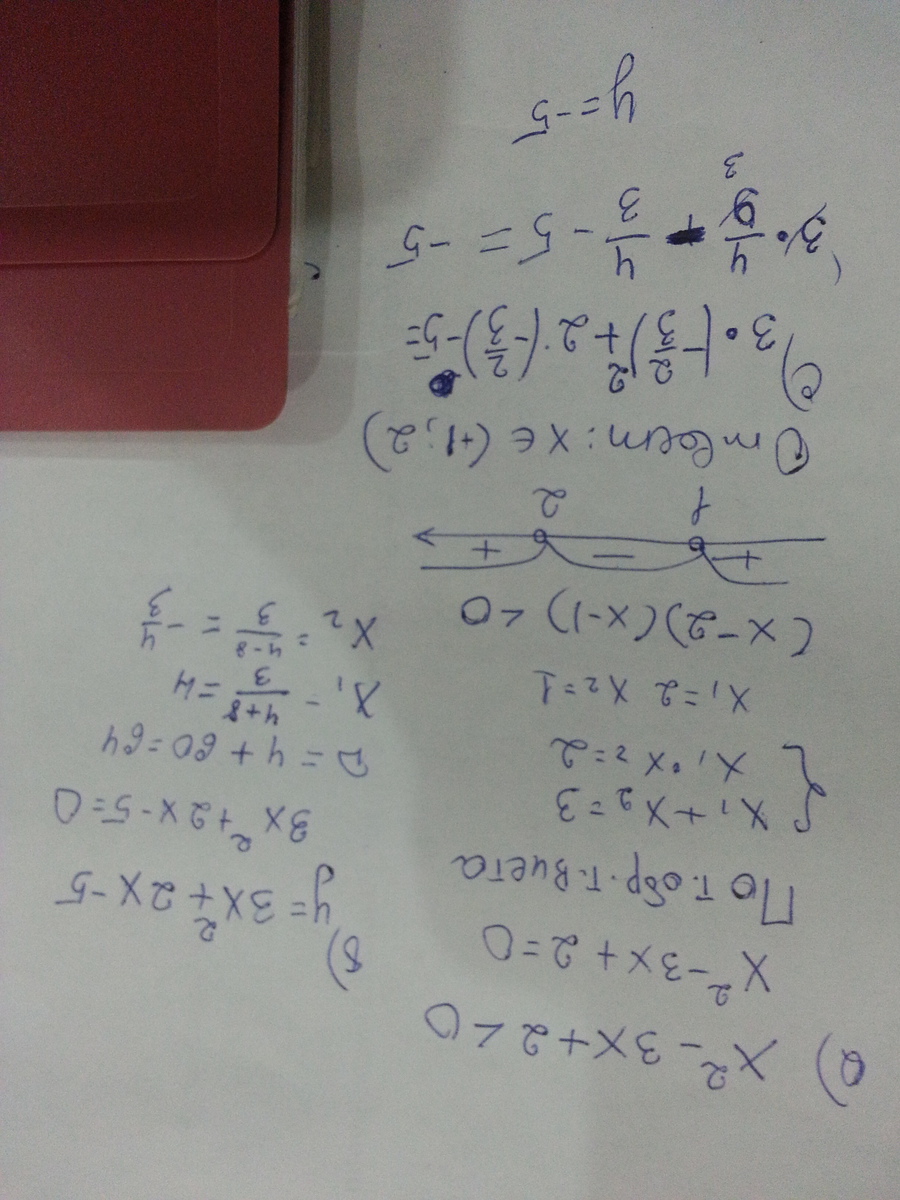 а) x² - 3x + 2 < 0
x² - 3x + 2 = 0
По т. обр. т. Виета
{ x₁ + x₂ = 3
x₁ • x₂ = 2
x₁ = 2 x₂ = 1
(x - 2)(x - 1) < 0
+ - +
1 2
Ответ: x ∈ (+1; 2)
б)
y = 3x² + 2x - 5
3x² + 2x - 5 = 0
D = 4 + 60 = 64
x₁ = (4+8)/3 = 4
x₂ = (4-8)/3 = -4/3
с)
3 • (-2/3)² + 2 · (-2/3) - 5 =
3 • 4/9 - 4/3 - 5 = -5
3
y = -5